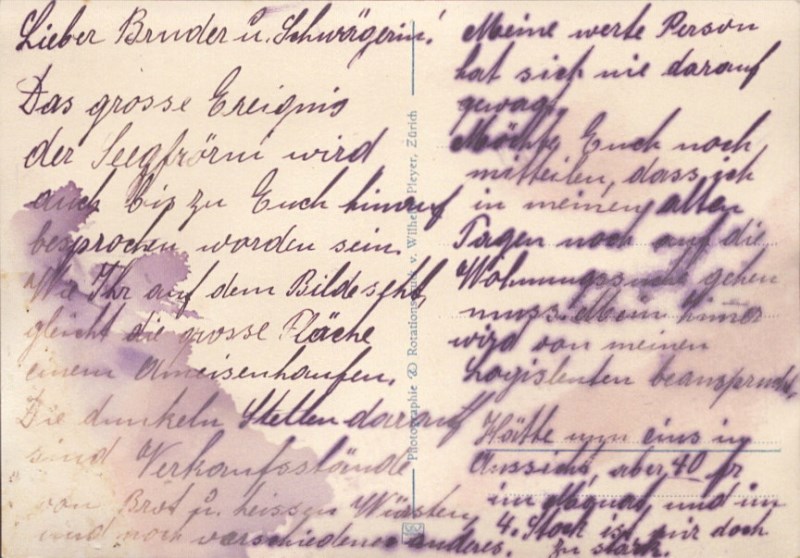 Lieber Bruder u. Schwägerin!
Das grosse Ereignis
der Seegfrörni wird
auch bis zu Euch hinauf
besprochen worden sein.
Wie Ihr auf dem Bilde seht,
gleicht die grosse Fläche
einem Ameisenhaufen.
Die dunkeln Stellen darauf
sind Verkaufsstände
von Brot u. heissen Würsten,
und noch verschiedenes anderes.
Photographie & Rotationsdruck v. Wilhelm Pleyer, Zürich
Meine werte Person
hat sich nie darauf
gewagt.
Möchte Euch noch
mitteilen, dass ich
in meinen alten
Tagen noch auf die
Wohnungssuche gehen
muss. Mein Zimmer
wird von meinen
Logisleuten beansprucht.
Hätte nun eins in
Aussicht, aber 40 fr
im Monat, und im
4. Stock ist mir doch
zu stark.